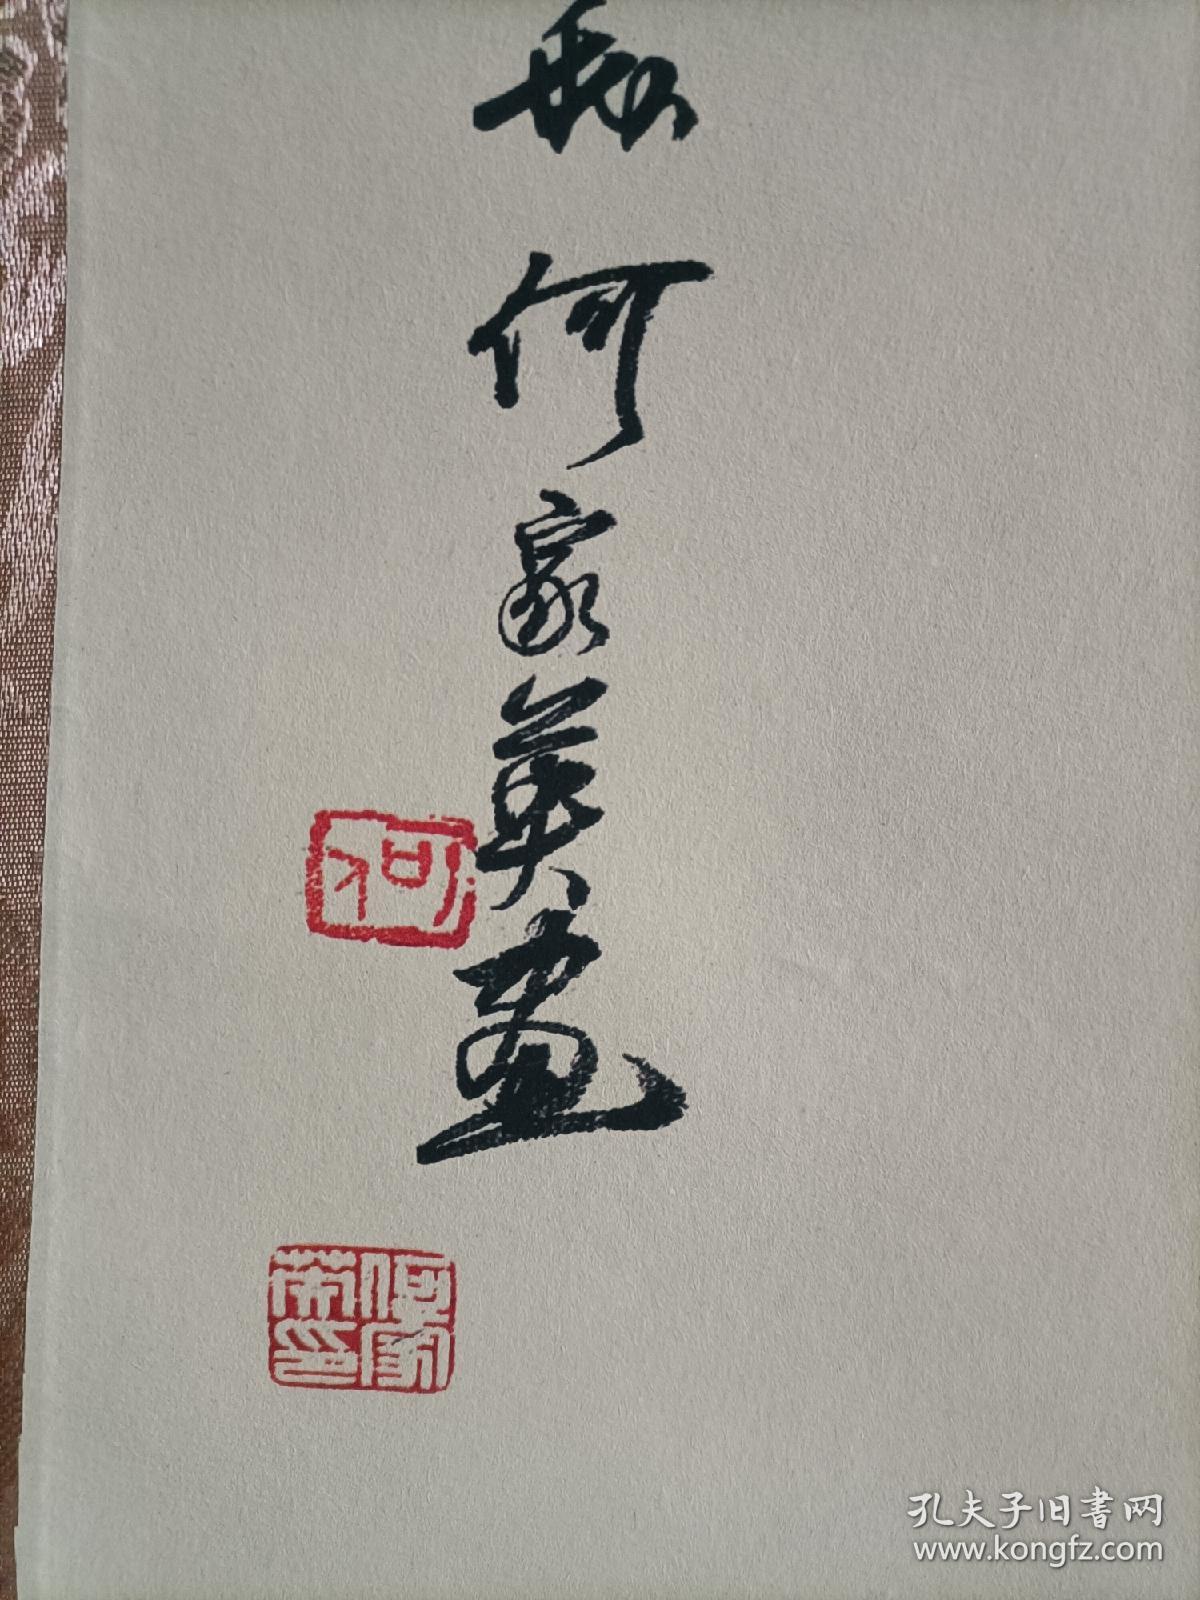 何家英画
何
何家英印
孔夫子旧书网
www.kongfz.com